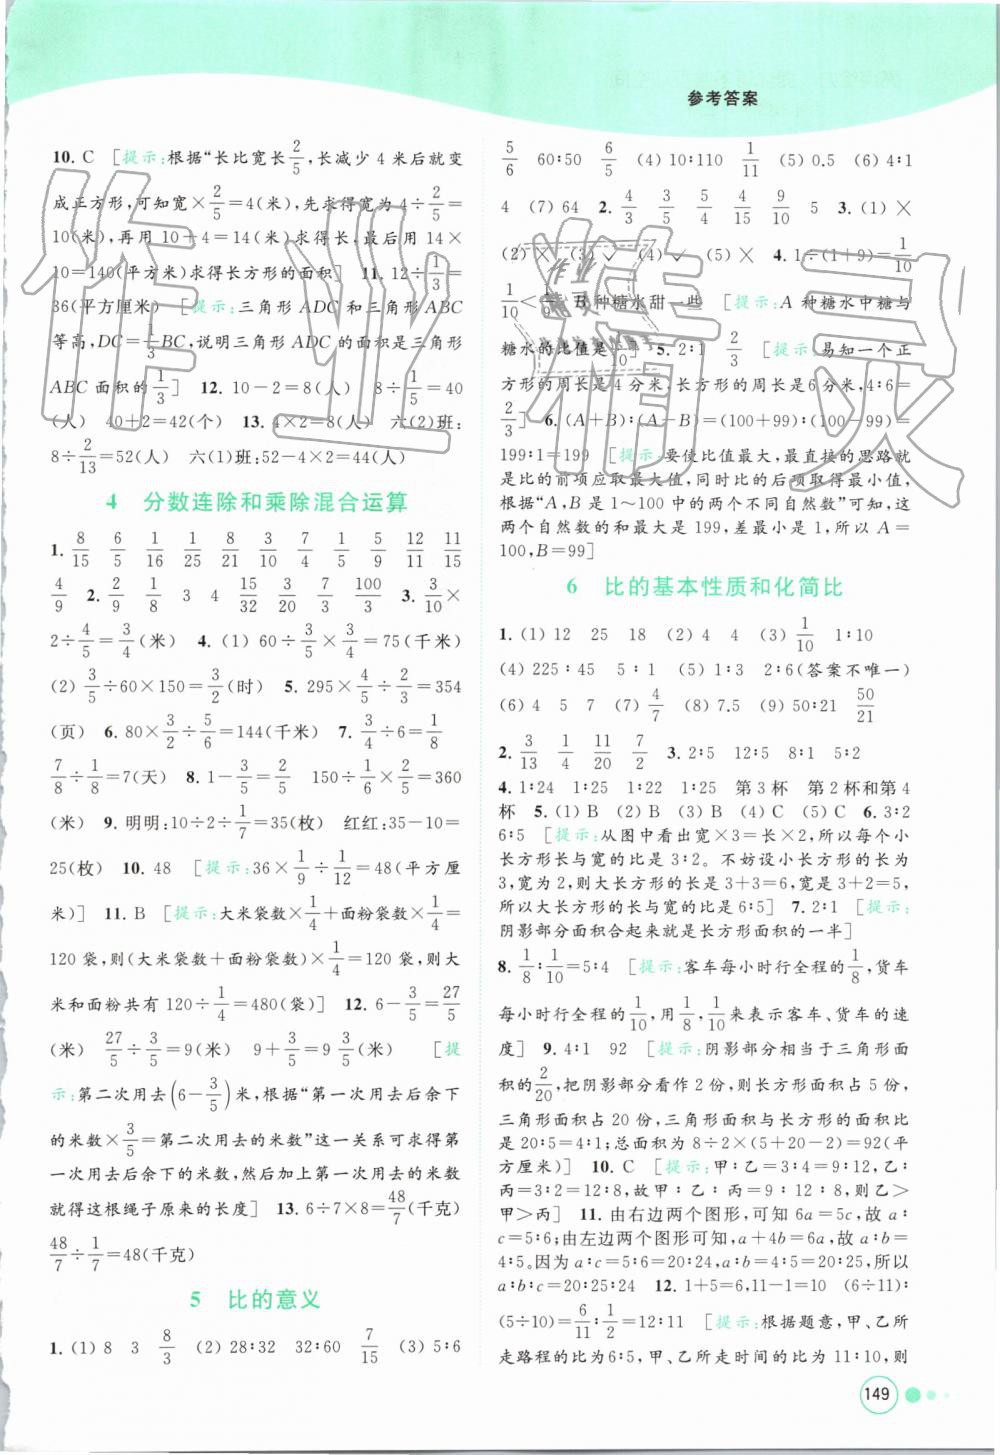 参考答案
10. C [提示:根据“长比宽长2/5,长减少 4 米后就变
成正方形,可知宽×2/5=4(米),先求得宽为 4÷2/5=
10(米),再用 10+4=14(米)求得长,最后用 14×
10=140(平方米)求得长方形的面积] 11. 12÷1/3=
36(平方厘米) [提示:三角形 ADC 和三角形 ABC
等高,DC=1/3BC,说明三角形 ADC 的面积是三角形
ABC 面积的1/3] 12. 10-2=8(人) 8÷1/5=40
(人) 40+2=42(个) 13. 4×2=8(人) 六(2)班:
8÷2/13=52(人) 六(1)班:52-4×2=44(人)
4 分数连除和乘除混合运算
1. 8/15 6/5 1/16 1/25 8/21 3/10 7/4 1/5 5/9 12/11 11/15
4/9 2. 2/9 1/8 3 4 15/32 3/20 7/3 100/3 3. 3/10×
2÷4/5=3/4(米) 4. (1) 60÷3/5×3/4=75(千米)
(2) 3/5÷60×150=3/2(时) 5. 295×4/5÷2/3=354
(页) 6. 80×3/2÷5/6=144(千米) 7. 3/4÷6=1/8
7/8÷1/8=7(天) 8. 1-3/5=2/5 150÷1/6×2/5=360
(米) 9. 明明:10÷2÷1/7=35(枚) 红红:35-10=
25(枚) 10. 48 [提示:36×1/9÷1/12=48(平方厘
米)] 11. B [提示:大米袋数×1/4+面粉袋数×1/4=
120 袋,则(大米袋数+面粉袋数)×1/4=120 袋,则大
米和面粉共有 120÷1/4=480(袋)] 12. 6-3/5=27/5
(米) 27/5÷3/5=9(米) 9+3/5=9 3/5(米) [提
示:第二次用去(6-3/5)米,根据“第一次用去后余下
的米数×3/5=第二次用去的米数”这一关系可求得第
一次用去后余下的米数,然后加上第一次用去的米数
就得这根绳子原来的长度] 13. 6÷7×8=48/7(千克)
48/7÷1/7=48(千克)
5 比的意义
1. (1) 8 3 8/3 (2) 28∶32 32∶60 7/15 (3) 5∶6
5/6 60∶50 6/5 (4) 10∶110 1/11 (5) 0.5 (6) 4∶1
4 (7) 64 2. 4/3 3/5 4/15 9/10 5 3. (1) ×
(2) × (3) ✓ (4) ✓ (5) × 4. 1÷(1+9)=1/10
1/10<1/9 B 种糖水甜一些 [提示:A 种糖水中糖与
糖水的比值是1/10] 5. 2∶1 2/3 [提示:易知一个正
方形的周长是 4 分米,长方形的周长是 6 分米,4∶6=
2/3] 6. (A+B)∶(A-B)=(100+99)∶(100-99)=
199∶1=199 [提示:要使比值最大,最直接的思路就
是比的前项应取最大值,同时比的后项取得最小值,
根据“A,B 是 1~100 中的两个不同自然数”可知,这
两个自然数的和最大是 199,差最小是 1,所以 A=
100,B=99]
6 比的基本性质和化简比
1. (1) 12 25 18 (2) 4 4 (3) 1/10 1∶10
(4) 225∶45 5∶1 (5) 1∶3 2∶6(答案不唯一)
(6) 4 5 7 (7) 4/7 (8) 7.5 (9) 50∶21 50/21
2. 3/13 1/4 11/20 7/2 3. 2∶5 12∶5 8∶1 5∶2
4. 1∶24 1∶25 1∶22 1∶25 第 3 杯 第 2 杯和第 4
杯 5. (1) B (2) B (3) B (4) C (5) C 6. 3∶2
6∶5 [提示:从图中看出宽×3=长×2,所以每个小
长方形长与宽的比是 3∶2。不妨设小长方形的长为
3,宽为 2,则大长方形的长是 3+3=6,宽是 3+2=5,
所以大长方形的长与宽的比是 6∶5] 7. 2∶1 [提示:
阴影部分面积合起来就是长方形面积的一半]
8. 1/8∶1/10=5∶4 [提示:客车每小时行全程的1/8,货车
每小时行全程的1/10,用1/8、1/10来表示客车、货车的速
度] 9. 4∶1 92 [提示:阴影部分相当于三角形面
积的2/20,把阴影部分看作 2 份,则长方形面积占 5 份,
三角形面积占 20 份,三角形面积与长方形的面积比
是 20∶5=4∶1;总面积为 8÷2×(5+20-2)=92(平
方厘米)] 10. C [提示:甲∶乙=3∶4=9∶12,乙∶
丙=3∶2=12∶8,故甲∶乙∶丙=9∶12∶8,则乙>
甲>丙] 11. 由右边两个图形,可知 6a=5c,故 a∶
c=5∶6;由左边两个图形可知,a+4b=6a,故 a∶b=
4∶5。因为 a∶c=5∶6=20∶24,a∶b=4∶5=20∶25,所以
a∶b∶c=20∶25∶24 12. 1+5=6,11-1=10 (6÷11)∶
(5÷10)=6/11∶1/2=12∶11 [提示:根据题意,甲、乙所
走路程的比为 6∶5,甲、乙所走时间的比为 11∶10,则
149
作业精灵